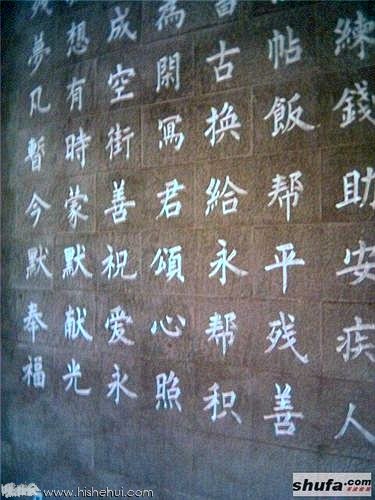 練錢助安疾人
帖飯帮平残善
古换給永帮积
為閑寫君頌心照
成空街善祝爱永
想有時蒙默献光
夢凡暫今默奉福
www.hishehui.com
shufa.com